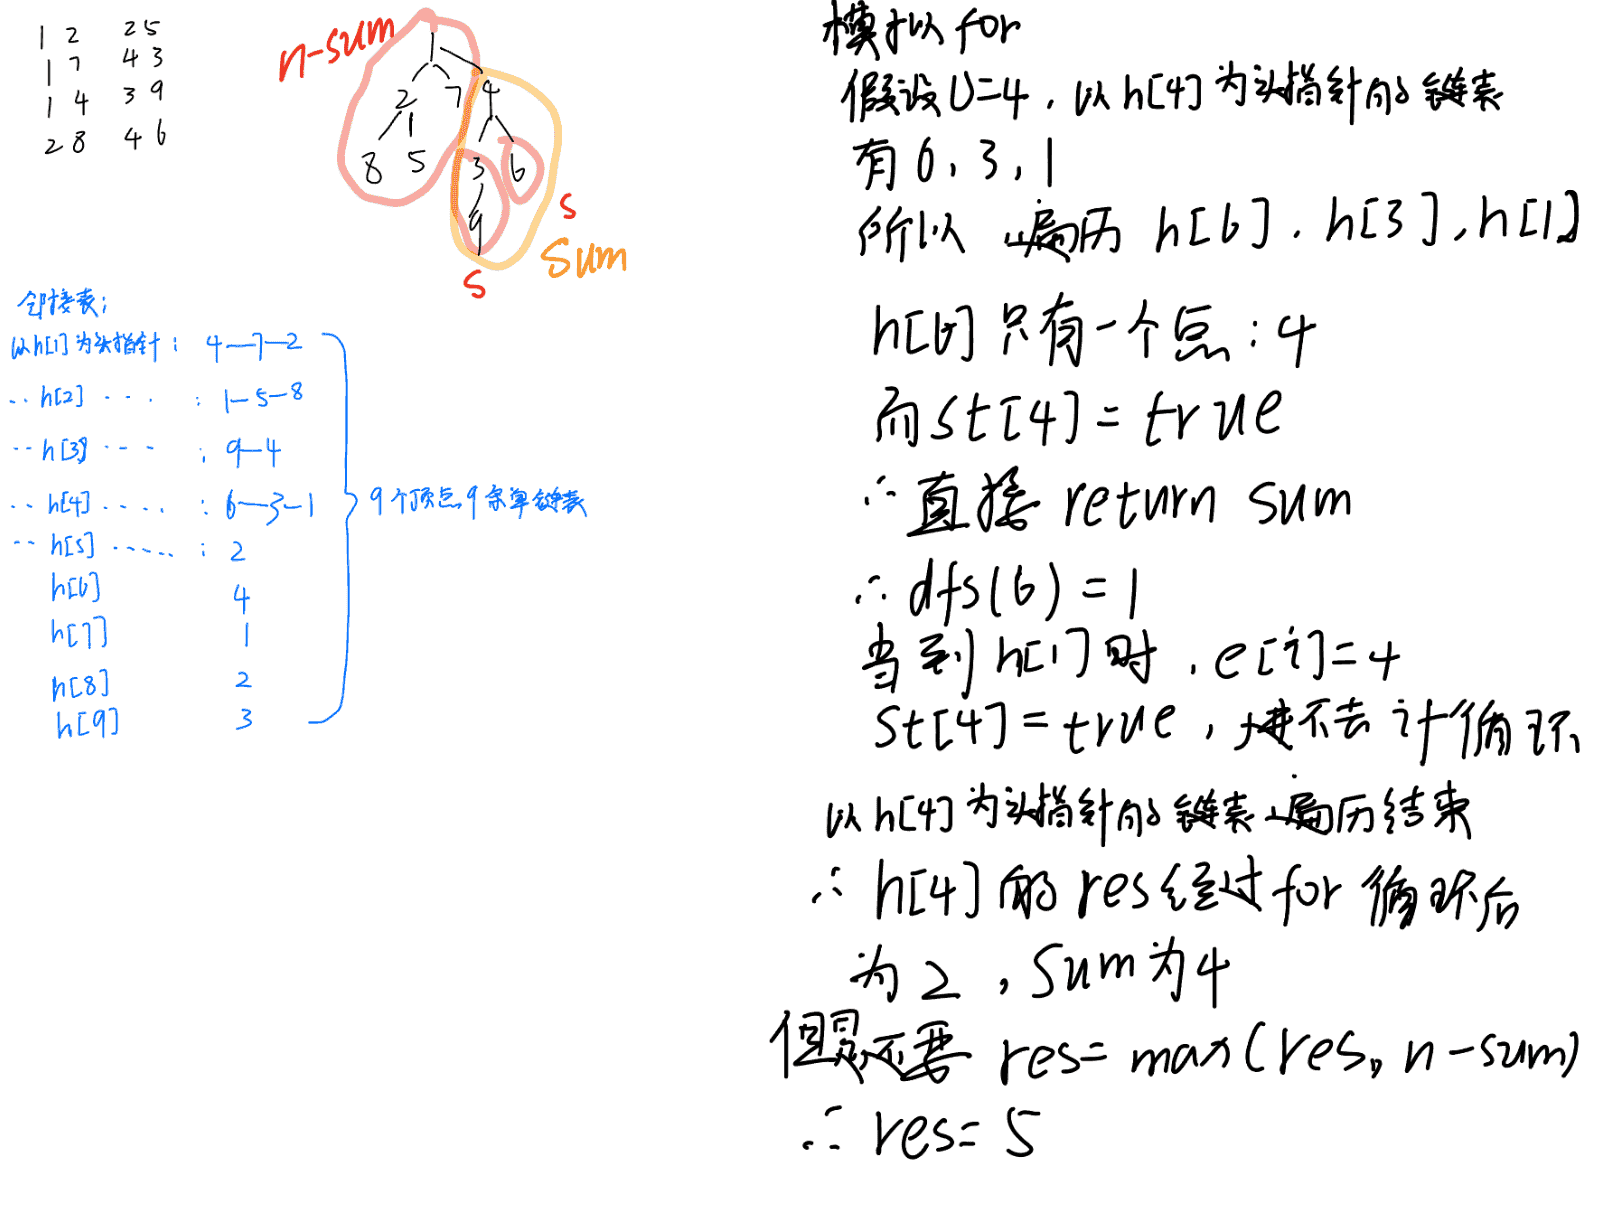 1 2 2 5
1 7 4 3
1 4 3 9
2 8 4 6
n-sum
1
2 7 4
8 1 5 3 6
9
s
s
sum
邻接表:
以h[1]为头指针: 4—7—2
·· h[2] ···· : 1—5—8
·· h[3] ··· : 9—4
·· h[4] ····· : 6—3—1
·· h[5] ······ : 2
h[6] 4
h[7] 1
h[8] 2
h[9] 3
9个顶点9条单链表
模拟for
假设U=4,以h[4]为头指针的链表
有6,3,1
所以 遍历 h[6], h[3], h[1]
h[6]只有一个点:4
而st[4]=true
∴直接return sum
∴dfs(6)=1
当到h[1]时,e[i]=4
st[4]=true,进不去计循环
以h[4]为头指针的链表遍历结束
∴h[4]的res经过for循环后
为2,Sum为4
但是还要res=max(res,n-sum)
∴res=5